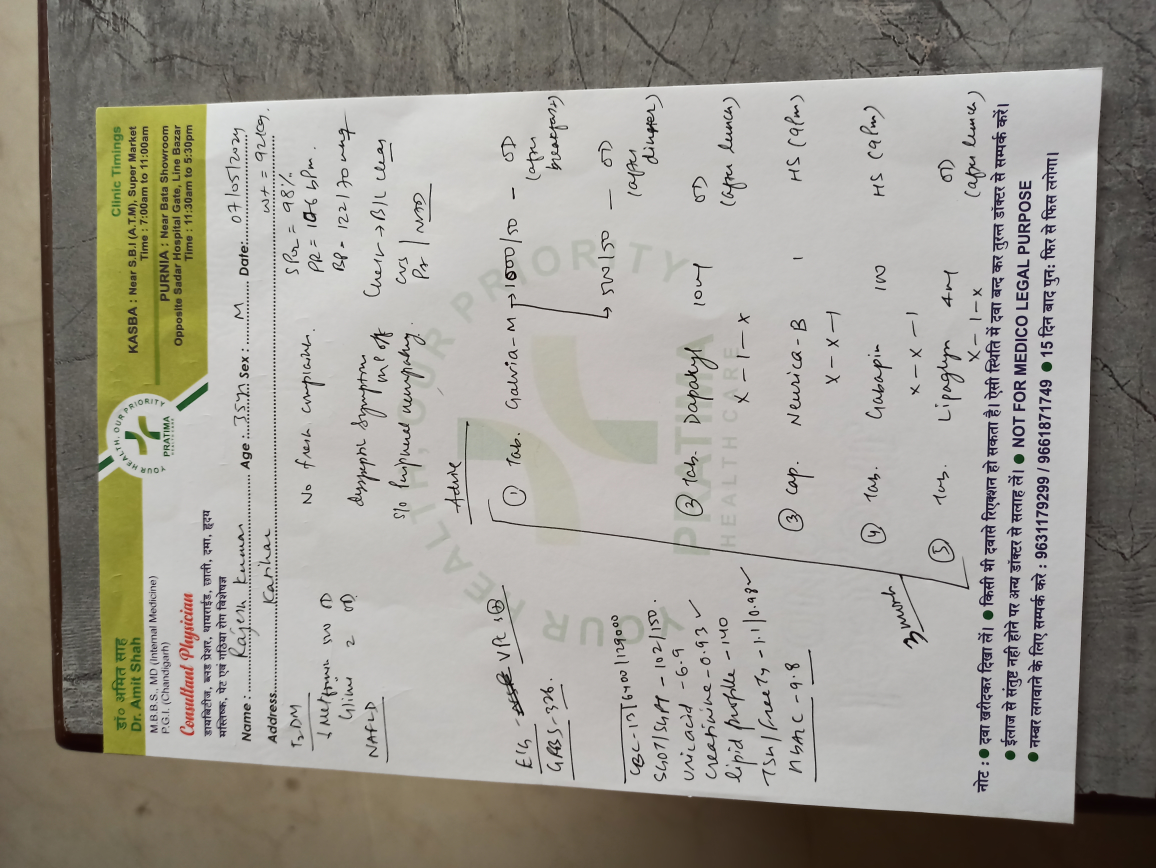 डॉ० अमित साह
Dr. Amit Shah
M.B.B.S., MD (Internal Medicine)
P.G.I. (Chandigarh)
Consultant Physician
डायबिटीज, ब्लड प्रेशर, थायराईड, छाती, दमा, हृदय
मस्तिष्क, पेट एवं गठिया रोग विशेषज्ञ
YOUR HEALTH, OUR PRIORITY
PRATIMA
HEALTHCARE
Clinic Timings
KASBA : Near S.B.I (A.T.M), Super Market
Time : 7:00am to 11:00am
PURNIA : Near Bata Showroom
Opposite Sadar Hospital Gate, Line Bazar
Time : 11:30am to 5:30pm
Name : Rajesh Kumar Age : 35yrs Sex : M Date: 07/05/2024
Address Katihar Wt = 92kg.
T2DM
Metformin 500 OD
Glimi 2 OD
NAFLD
No fresh complaints.
dyspeptic symptom
s/o peripheral neuropathy.
SPO2 = 98%
PR = 106 bpm.
BP = 122/70 mmHg
Chest → B/L clear
CVS | NAD
Advise
ECG -
GRBS - 326.
CBC - 13/6400/129000
SGOT/SGPT - 102/150.
Uric acid - 6.9
Creatinine - 0.93 ✓
lipid profile - 140
TSH/Free T4 - 1.1/0.98 ✓
HbA1C - 9.8
① Tab. Galvia-M → 1000/50 - OD
(after breakfast)
→ 500/50 — OD
(after dinner)
② Tab. Dapahyl 10mg OD
x - 1 - x (after lunch)
③ Cap. Neurica-B 1 HS (9Pm)
x - x - 1
④ Tab. Gabapin 100 HS (9Pm)
x - x - 1
⑤ Tab. Lipaglyn 4mg OD
x - 1 - x (after lunch)
3 month
नोट : ● दवा खरीदकर दिखा लें। ● किसी भी दवासे रिएक्शन हो सकता है। ऐसी स्थिति में दवा बन्द कर तुरन्त डॉक्टर से सम्पर्क करें।
● ईलाज से संतुष्ट नही होने पर अन्य डॉक्टर से सलाह लें। ● NOT FOR MEDICO LEGAL PURPOSE
● नम्बर लगवाने के लिए सम्पर्क करे : 9631179299 / 9661871749 ● 15 दिन बाद पुनः फिर से फिस लगेगा।